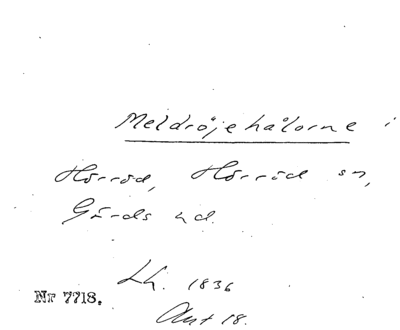 Meldröjehålorne i
Hörröd, Hörröd sn,
Gärds hd.
Lh. 1836
Akt 18.
Nr 7718.